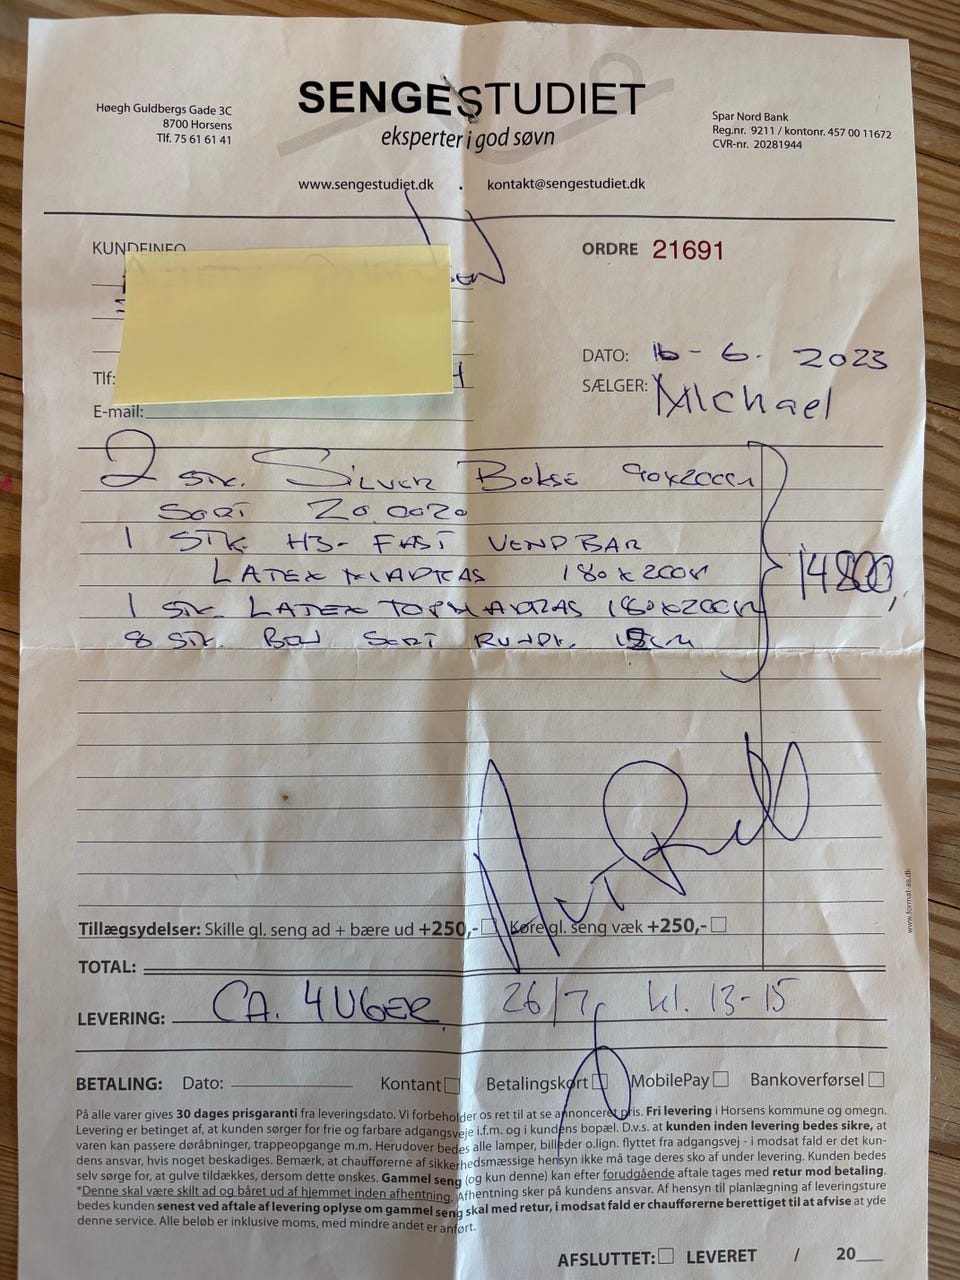 SENGESTUDIET
eksperter i god søvn
Høegh Guldbergs Gade 3C
8700 Horsens
Tlf. 75 61 61 41
Spar Nord Bank
Reg.nr. 9211 / kontonr. 457 00 11672
CVR-nr. 20281944
www.sengestudiet.dk . kontakt@sengestudiet.dk
KUNDEINFO
ORDRE 21691
DATO: 16-6. 2023
SÆLGER: Michael
Tlf:
E-mail:
2 STK. SILVER BOKSE 90x200CM
SORT 20.0020
1 STK H3- FAST VENDBAR
LATEX MADRAS 180x200CM
1 STK. LATEX TOPMADRAS 180x200CM
8 STK. BEN SORT RUNDE.
14800,
Tillægsydelser: Skille gl. seng ad + bære ud +250,- Køre gl. seng væk +250,-
TOTAL:
LEVERING: CA. 4 UGER 26/7 kl. 13-15
BETALING: Dato: Kontant Betalingskort MobilePay Bankoverførsel
På alle varer gives 30 dages prisgaranti fra leveringsdato. Vi forbeholder os ret til at se annonceret pris. Fri levering i Horsens kommune og omegn.
Levering er betinget af, at kunden sørger for frie og farbare adgangsveje i.f.m. og i kundens bopæl. D.v.s. at kunden inden levering bedes sikre, at
varen kan passere døråbninger, trappeopgange m.m. Herudover bedes alle lamper, billeder o.lign. flyttet fra adgangsvej - i modsat fald er det kun-
dens ansvar, hvis noget beskadiges. Bemærk, at chaufførerne af sikkerhedsmæssige hensyn ikke må tage deres sko af under levering. Kunden bedes
selv sørge for, at gulve tildækkes, dersom dette ønskes. Gammel seng (og kun denne) kan efter forudgående aftale tages med retur mod betaling.
*Denne skal være skilt ad og båret ud af hjemmet inden afhentning. Afhentning sker på kundens ansvar. Af hensyn til planlægning af leveringsture
bedes kunden senest ved aftale af levering oplyse om gammel seng skal med retur, i modsat fald er chaufførerne berettiget til at afvise at yde
denne service. Alle beløb er inklusive moms, med mindre andet er anført.
AFSLUTTET: LEVERET / 20
www.format-as.dk